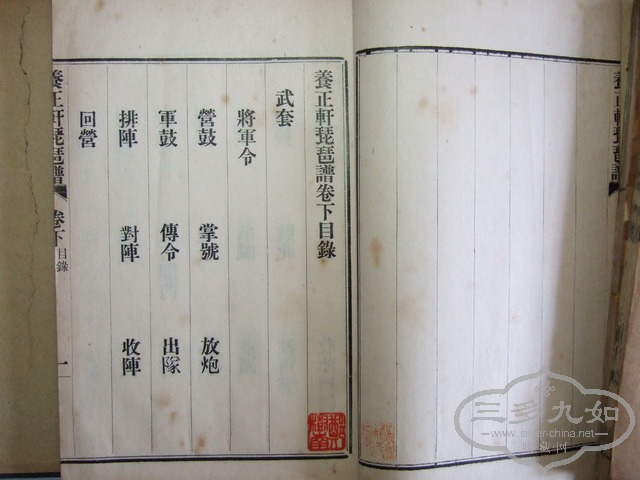 養正軒琵琶譜
養正軒琵琶譜卷下目錄
武套
將軍令
營鼓 掌號 放炮
軍鼓 傳令 出隊
排陣 對陣 收陣
回營
養正軒琵琶譜 卷下 目錄 一
三多九如
www.silver-china.net